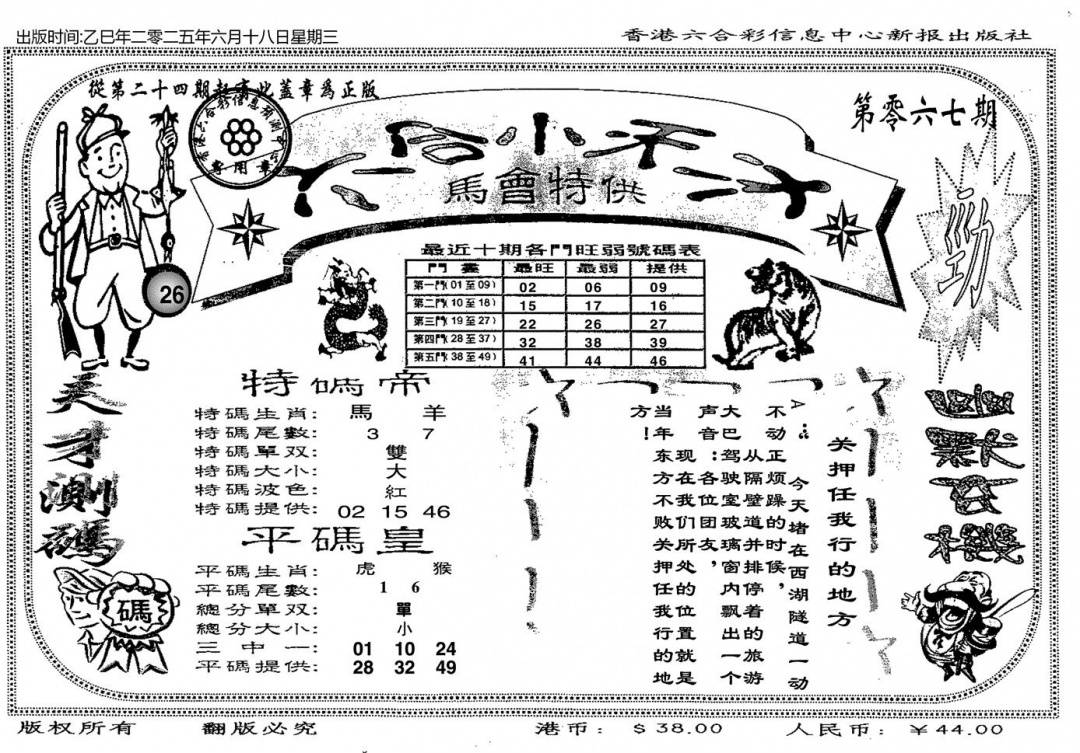 出版时间:乙巳年二零二五年六月十八日星期三
香港六合彩信息中心新报出版社
從第二十四期起有此蓋章爲正版
第零六七期
專用章
馬會特供
勁
26
最近十期各門旺弱號碼表
門 最旺 最弱 提供
第一門(01至09) 02 06 09
第二門(10至18) 15 17 16
第三門(19至27) 22 26 27
第四門(28至37) 32 38 39
第五門(38至49) 41 44 46
天才測碼
碼
特碼帝
特碼生肖: 馬 羊
特碼尾數: 3 7
特碼單双: 雙
特碼大小: 大
特碼波色: 紅
特碼提供: 02 15 46
平碼皇
平碼生肖: 虎 猴
平碼尾數: 1 6
總分單双: 單
總分大小: 小
三中一: 01 10 24
平碼提供: 28 32 49
幽默玄機
关押任我行的地方
A:今天堵在西湖隧道一动
不动正烦躁的时候,
从隔壁道并排停着的旅游
大巴驾驶室玻璃窗内飘出一个
声音:各位团友,
现在我们所处的位置就是
当年东方不败关押任我行的地
方!
版权所有 翻版必究 港币: $38.00 人民币: ¥44.00